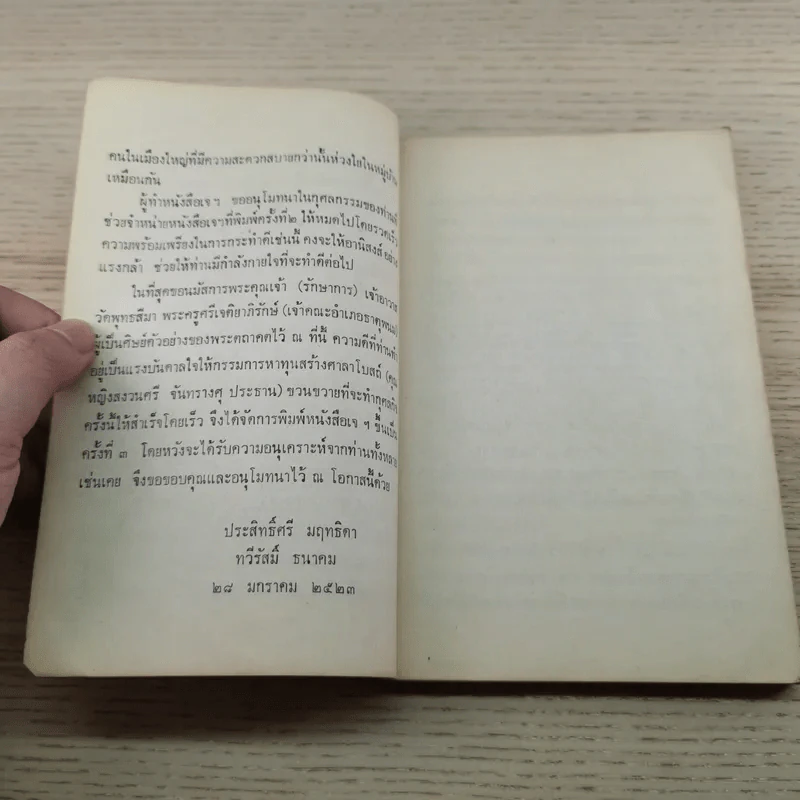 คนในเมืองใหญ่ที่มีความสะดวกสบายกว่านั้นห่วงใยในหมู่บ้าน
เหมือนกัน
ผู้ทำหนังสือเจฯ ขออนุโมทนาในกุศลกรรมของท่านที่
ช่วยจำหน่ายหนังสือเจฯที่พิมพ์ครั้งที่๒ ให้หมดไปโดยรวดเร็ว
ความพร้อมเพรียงในการกระทำดีเช่นนี้ คงจะให้อานิสงส์อย่าง
แรงกล้า ช่วยให้ท่านมีกำลังกายใจที่จะทำดีต่อไป
ในที่สุดขอนมัสการพระคุณเจ้า (รักษาการ) เจ้าอาวาส
วัดพุทธสีมา พระครูศรีเจติยาภิรักษ์ (เจ้าคณะอำเภอธาตุพนม)
ผู้เป็นศิษย์ตัวอย่างของพระตถาคตไว้ ณ ที่นี้ ความดีที่ท่านทำ
อยู่เป็นแรงบันดาลใจให้กรรมการหาทุนสร้างศาลาโบสถ์ (คุณ
หญิงสงวนศรี จันทรางศุ ประธาน) ขวนขวายที่จะทำกุศลกิจ
ครั้งนี้ให้สำเร็จโดยเร็ว จึงได้จัดการพิมพ์หนังสือเจ ฯ ขึ้นเป็น
ครั้งที่ ๓ โดยหวังจะได้รับความอนุเคราะห์จากท่านทั้งหลาย
เช่นเคย จึงขอขอบคุณและอนุโมทนาไว้ ณ โอกาสนี้ด้วย
ประสิทธิ์ศรี มฤทธิดา
ทวีรัสมิ์ ธนาคม
๒๘ มกราคม ๒๕๒๓